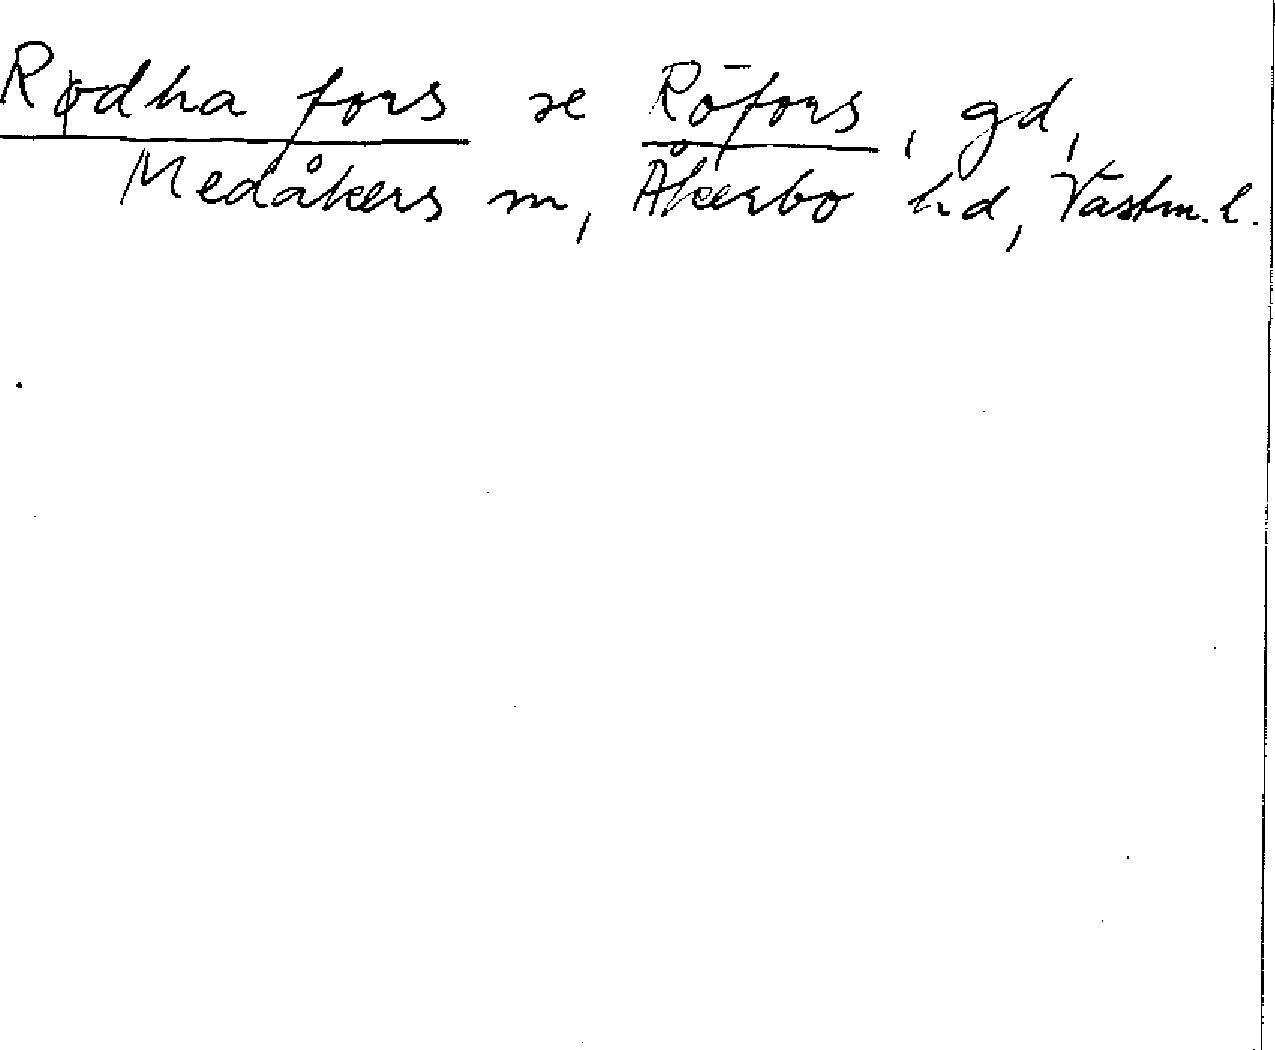 Rødha fors se Röfors, gd,
Medåkers sn, Åkerbo hd, Västm. l.